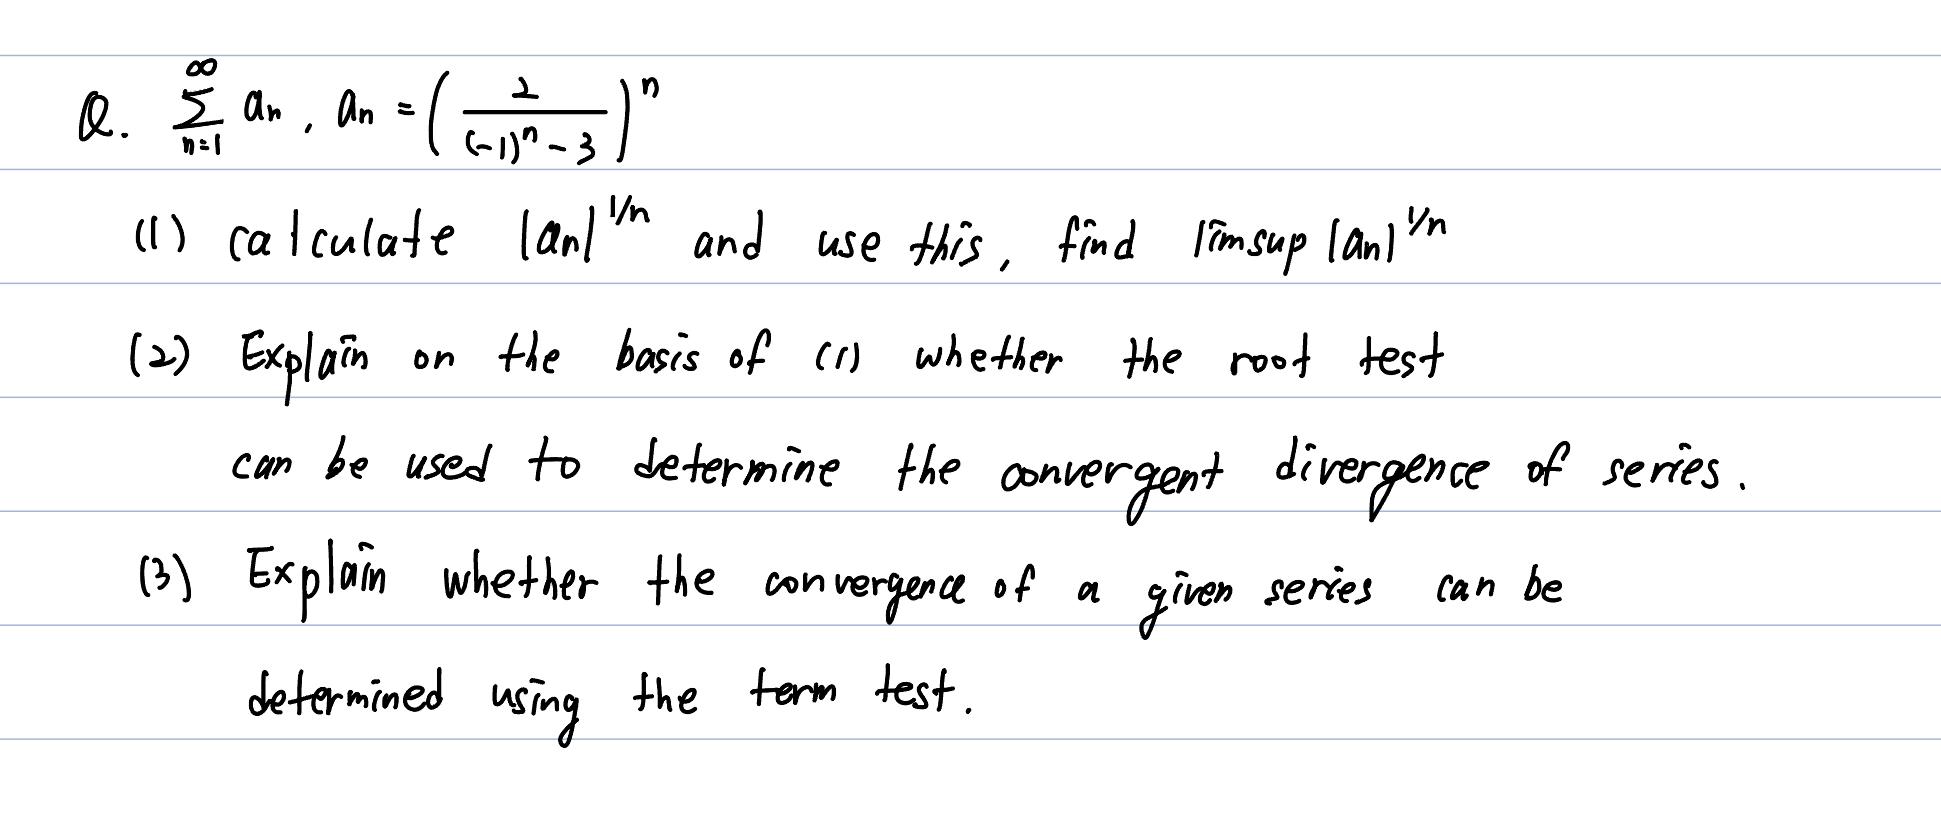 Q. ∞∑n=1 an , an = ( 2 / (-1)^n - 3 )^n
(1) calculate |an|^1/n and use this, find limsup |an|^1/n
(2) Explain on the basis of (1) whether the root test
can be used to determine the convergent divergence of series.
(3) Explain whether the convergence of a given series can be
determined using the term test.